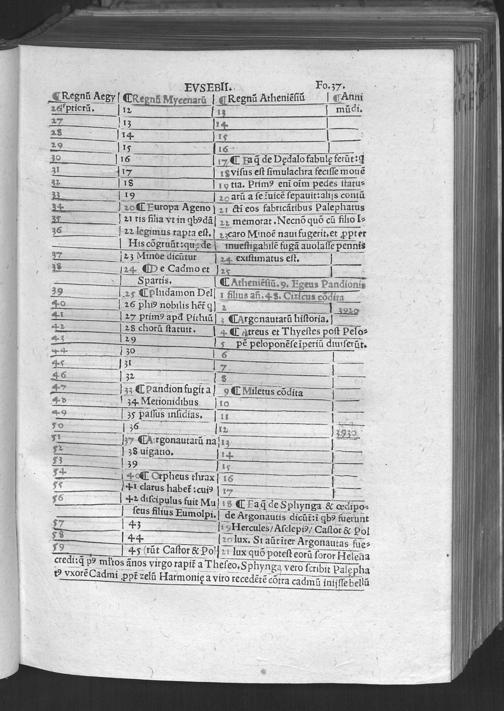 EVSEBII. Fo.37.
¶Regnũ Aegy ¶Regnũ Mycenarũ ¶Regnũ Atheniẽsiũ ¶Anni
26 ptiorũ. 12 13 mũdi.
27 13 14
28 14 15
29 15 16
30 16 17 ¶Ea q̃ de Dędalo fabulę ferũt: q
31 17 18 visus est simulachra fecisse mouẽ
32 18 19 tia. Primꝰ eni oim pedes statu-
33 19 20 arũ a se iuicẽ sepauit: alijs contũ
34 20 ¶Europa Ageno 21 cti eos fabricãtibus Palephatus
35 21 ris filia vt in qbꝰdã 22 memorat. Necnõ quo cũ filio I-
36 22 legimus rapta est. 23 caro Minoẽ naui fugerit, et ppter
His cõgruũt: que de inuestigabilẽ fugã auolasse pennis
37 23 Minoe dicũtur 24 existimatus est.
38 24 ¶De Cadmo et 25
Spartis. ¶Atheniẽsiũ. 9. Egeus Pandionis
39 25 ¶Phidamon Del 1 filius añ. 48. Cizicus cõdita
40 26 phiꝰ nobilis hẽt q 2 3920
41 27 primꝰ apd Pithiũ 3 ¶Argonautarũ historia.
42 28 chorũ statuit. 4 ¶Atreus et Thyestes post Pelo-
43 29 5 pẽ peloponẽse ĩperiũ diuiserũt.
44 30 6
45 31 7
46 32 8
47 33 ¶Pandion fugit a 9 ¶Miletus cõdita
48 34 Metionidibus 10
49 35 passus insidias. 11
50 36 12 3930
51 37 ¶Argonautarũ na 13
52 38 uigatio. 14
53 39 15
54 40 ¶Orpheus thrax 16
55 41 clarus habet: cuiꝰ 17
56 42 discipulus fuit Mu 18 ¶Ea q̃ de Sphynga & œdipo-
seus filius Eumolpi. de Argonautis dicũt: ĩ qbꝰ fuerunt
57 43 19 Hercules/ Asclepiꝰ/ Castor & Pol
58 44 20 lux. Si aũt iter Argonautas fue-
59 45 (rũt Castor & Pol 21 lux quõ potest eorũ soror Helena
credi: q pꝰ ml'tos ãnos virgo rapit a Theseo. Sphynga vero scribit Palępha
tꝰ vxorẽ Cadmi ppt zelũ Harmonię a viro recedẽtẽ cõtra cadmũ inijsse bellũ